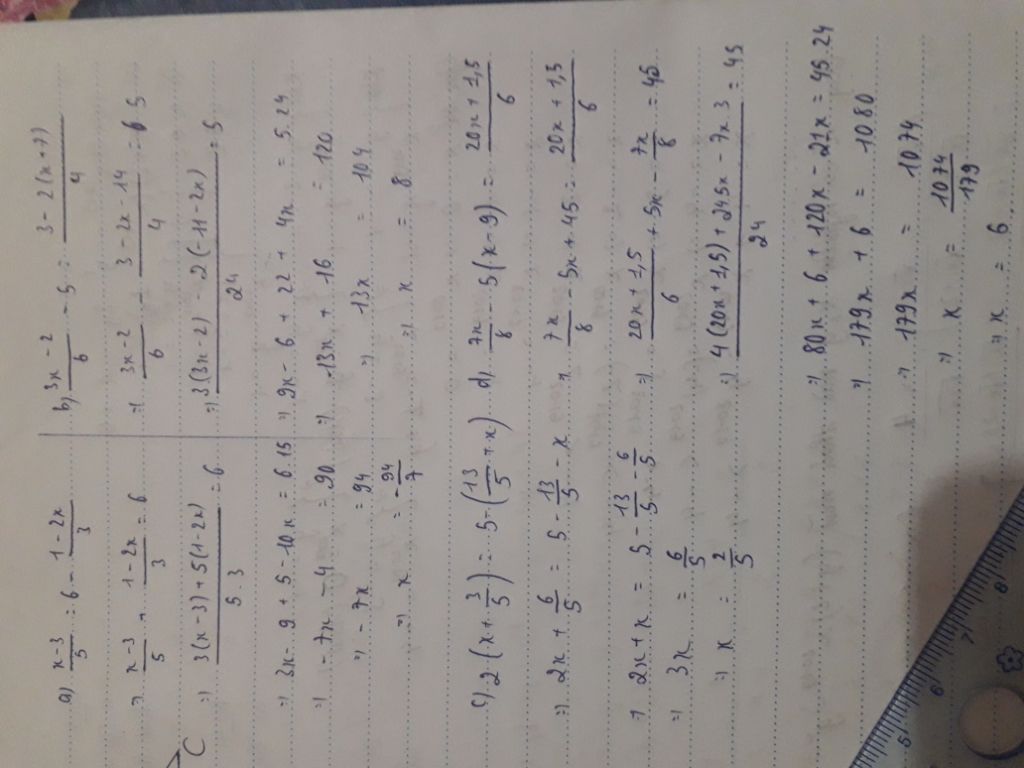 a) (x-3)/5 = 6 - (1-2x)/3
⇒ (x-3)/5 + (1-2x)/3 = 6
⇒ (3(x-3)+5(1-2x))/(5.3) = 6
C
⇒ 3x - 9 + 5 - 10x = 6.15
⇒ -7x - 4 = 90
⇒ -7x = 94
⇒ x = -94/7
b) (3x-2)/6 - 5 = (3-2(x+7))/4
⇒ (3x-2)/6 - (3-2x-14)/4 = 5
⇒ (3(3x-2) - 2(-11-2x))/24 = 5
⇒ 9x - 6 + 22 + 4x = 5.24
⇒ 13x + 16 = 120
⇒ 13x = 104
⇒ x = 8
c) 2(x + 3/5) = 5 - (13/5 + x)
⇒ 2x + 6/5 = 5 - 13/5 - x
⇒ 2x + x = 5 - 13/5 - 6/5
⇒ 3x = 6/5
⇒ x = 2/5
d) 7x/8 - 5(x-9) = (20x+1,5)/6
⇒ 7x/8 - 5x + 45 = (20x+1,5)/6
⇒ (20x+1,5)/6 + 5x - 7x/8 = 45
⇒ (4(20x+1,5) + 24.5x - 7x.3)/24 = 45
⇒ 80x + 6 + 120x - 21x = 45.24
⇒ 179x + 6 = 1080
⇒ 179x = 1074
⇒ x = 1074/179
⇒ x = 6
5 6 7 8